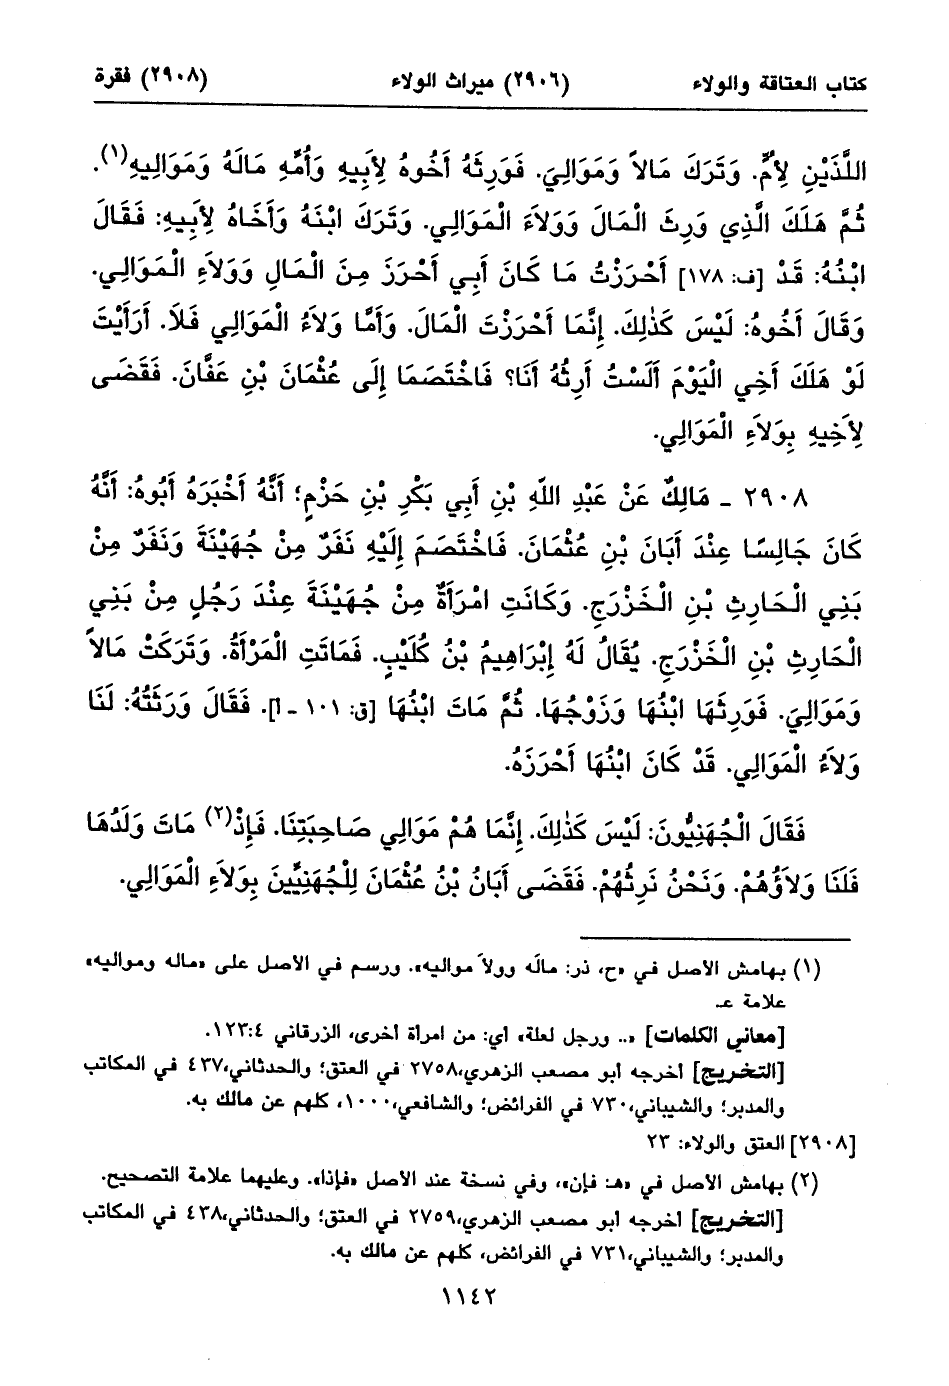 كتاب العتاقة والولاء (٢٩٠٦) ميراث الولاء (٢٩٠٨) فقرة
اللَّذَيْنِ لِأُمٍّ. وَتَرَكَ مَالاً وَمَوَالِيَ. فَوَرِثَهُ أَخُوهُ لِأَبِيهِ وَأُمِّهِ مَالَهُ وَمَوَالِيهِ(١).
ثُمَّ هَلَكَ الَّذِي وَرِثَ الْمَالَ وَوَلاَءَ الْمَوَالِي. وَتَرَكَ ابْنَهُ وَأَخَاهُ لِأَبِيهِ: فَقَالَ
ابْنُهُ: قَدْ [ف: ١٧٨] أَحْرَزْتُ مَا كَانَ أَبِي أَحْرَزَ مِنَ الْمَالِ وَوَلاَءِ الْمَوَالِي.
وَقَالَ أَخُوهُ: لَيْسَ كَذٰلِكَ. إِنَّمَا أَحْرَزْتَ الْمَالَ. وَأَمَّا وَلاَءُ الْمَوَالِي فَلاَ. أَرَأَيْتَ
لَوْ هَلَكَ أَخِي الْيَوْمَ أَلَسْتُ أَرِثُهُ أَنَا؟ فَاخْتَصَمَا إِلَى عُثْمَانَ بْنِ عَفَّانَ. فَقَضَى
لِأَخِيهِ بِوَلاَءِ الْمَوَالِي.
٢٩٠٨ ـ مَالِكٌ عَنْ عَبْدِ اللَّهِ بْنِ أَبِي بَكْرِ بْنِ حَزْمٍ؛ أَنَّهُ أَخْبَرَهُ أَبُوهُ: أَنَّهُ
كَانَ جَالِسًا عِنْدَ أَبَانَ بْنِ عُثْمَانَ. فَاخْتَصَمَ إِلَيْهِ نَفَرٌ مِنْ جُهَيْنَةَ وَنَفَرٌ مِنْ
بَنِي الْحَارِثِ بْنِ الْخَزْرَجِ. وَكَانَتِ امْرَأَةٌ مِنْ جُهَيْنَةَ عِنْدَ رَجُلٍ مِنْ بَنِي
الْحَارِثِ بْنِ الْخَزْرَجِ. يُقَالُ لَهُ إِبْرَاهِيمُ بْنُ كُلَيْبٍ. فَمَاتَتِ الْمَرْأَةُ. وَتَرَكَتْ مَالاً
وَمَوَالِيَ. فَوَرِثَهَا ابْنُهَا وَزَوْجُهَا. ثُمَّ مَاتَ ابْنُهَا [ق: ١٠١ ـ أ]. فَقَالَ وَرَثَتُهُ: لَنَا
وَلاَءُ الْمَوَالِي. قَدْ كَانَ ابْنُهَا أَحْرَزَهُ.
فَقَالَ الْجُهَنِيُّونَ: لَيْسَ كَذٰلِكَ. إِنَّمَا هُمْ مَوَالِي صَاحِبَتِنَا. فَإِذْ(٢) مَاتَ وَلَدُهَا
فَلَنَا وَلاَؤُهُمْ. وَنَحْنُ نَرِثُهُمْ. فَقَضَى أَبَانُ بْنُ عُثْمَانَ لِلْجُهَنِيِّينَ بِوَلاَءِ الْمَوَالِي.
(١) بهامش الأصل في «ح، ذر: مالَه وولاَ مواليه». ورسم في الأصل على «ماله ومواليه»
علامة عـ
[معاني الكلمات] «.. ورجل لعلة» أي: من امرأة أخرى، الزرقاني ١٢٣:٤.
[التخريج] أخرجه أبو مصعب الزهري،٢٧٥٨ في العتق؛ والحدثاني،٤٣٧ في المكاتب
والمدبر؛ والشيباني،٧٣٠ في الفرائض؛ والشافعي،١٠٠٠، كلهم عن مالك به.
[٢٩٠٨] العتق والولاء: ٢٣
(٢) بهامش الأصل في «هـ: فإن»، وفي نسخة عند الأصل «فإذا». وعليهما علامة التصحيح.
[التخريج] أخرجه أبو مصعب الزهري،٢٧٥٩ في العتق؛ والحدثاني،٤٣٨ في المكاتب
والمدبر؛ والشيباني،٧٣١ في الفرائض، كلهم عن مالك به.
١١٤٢